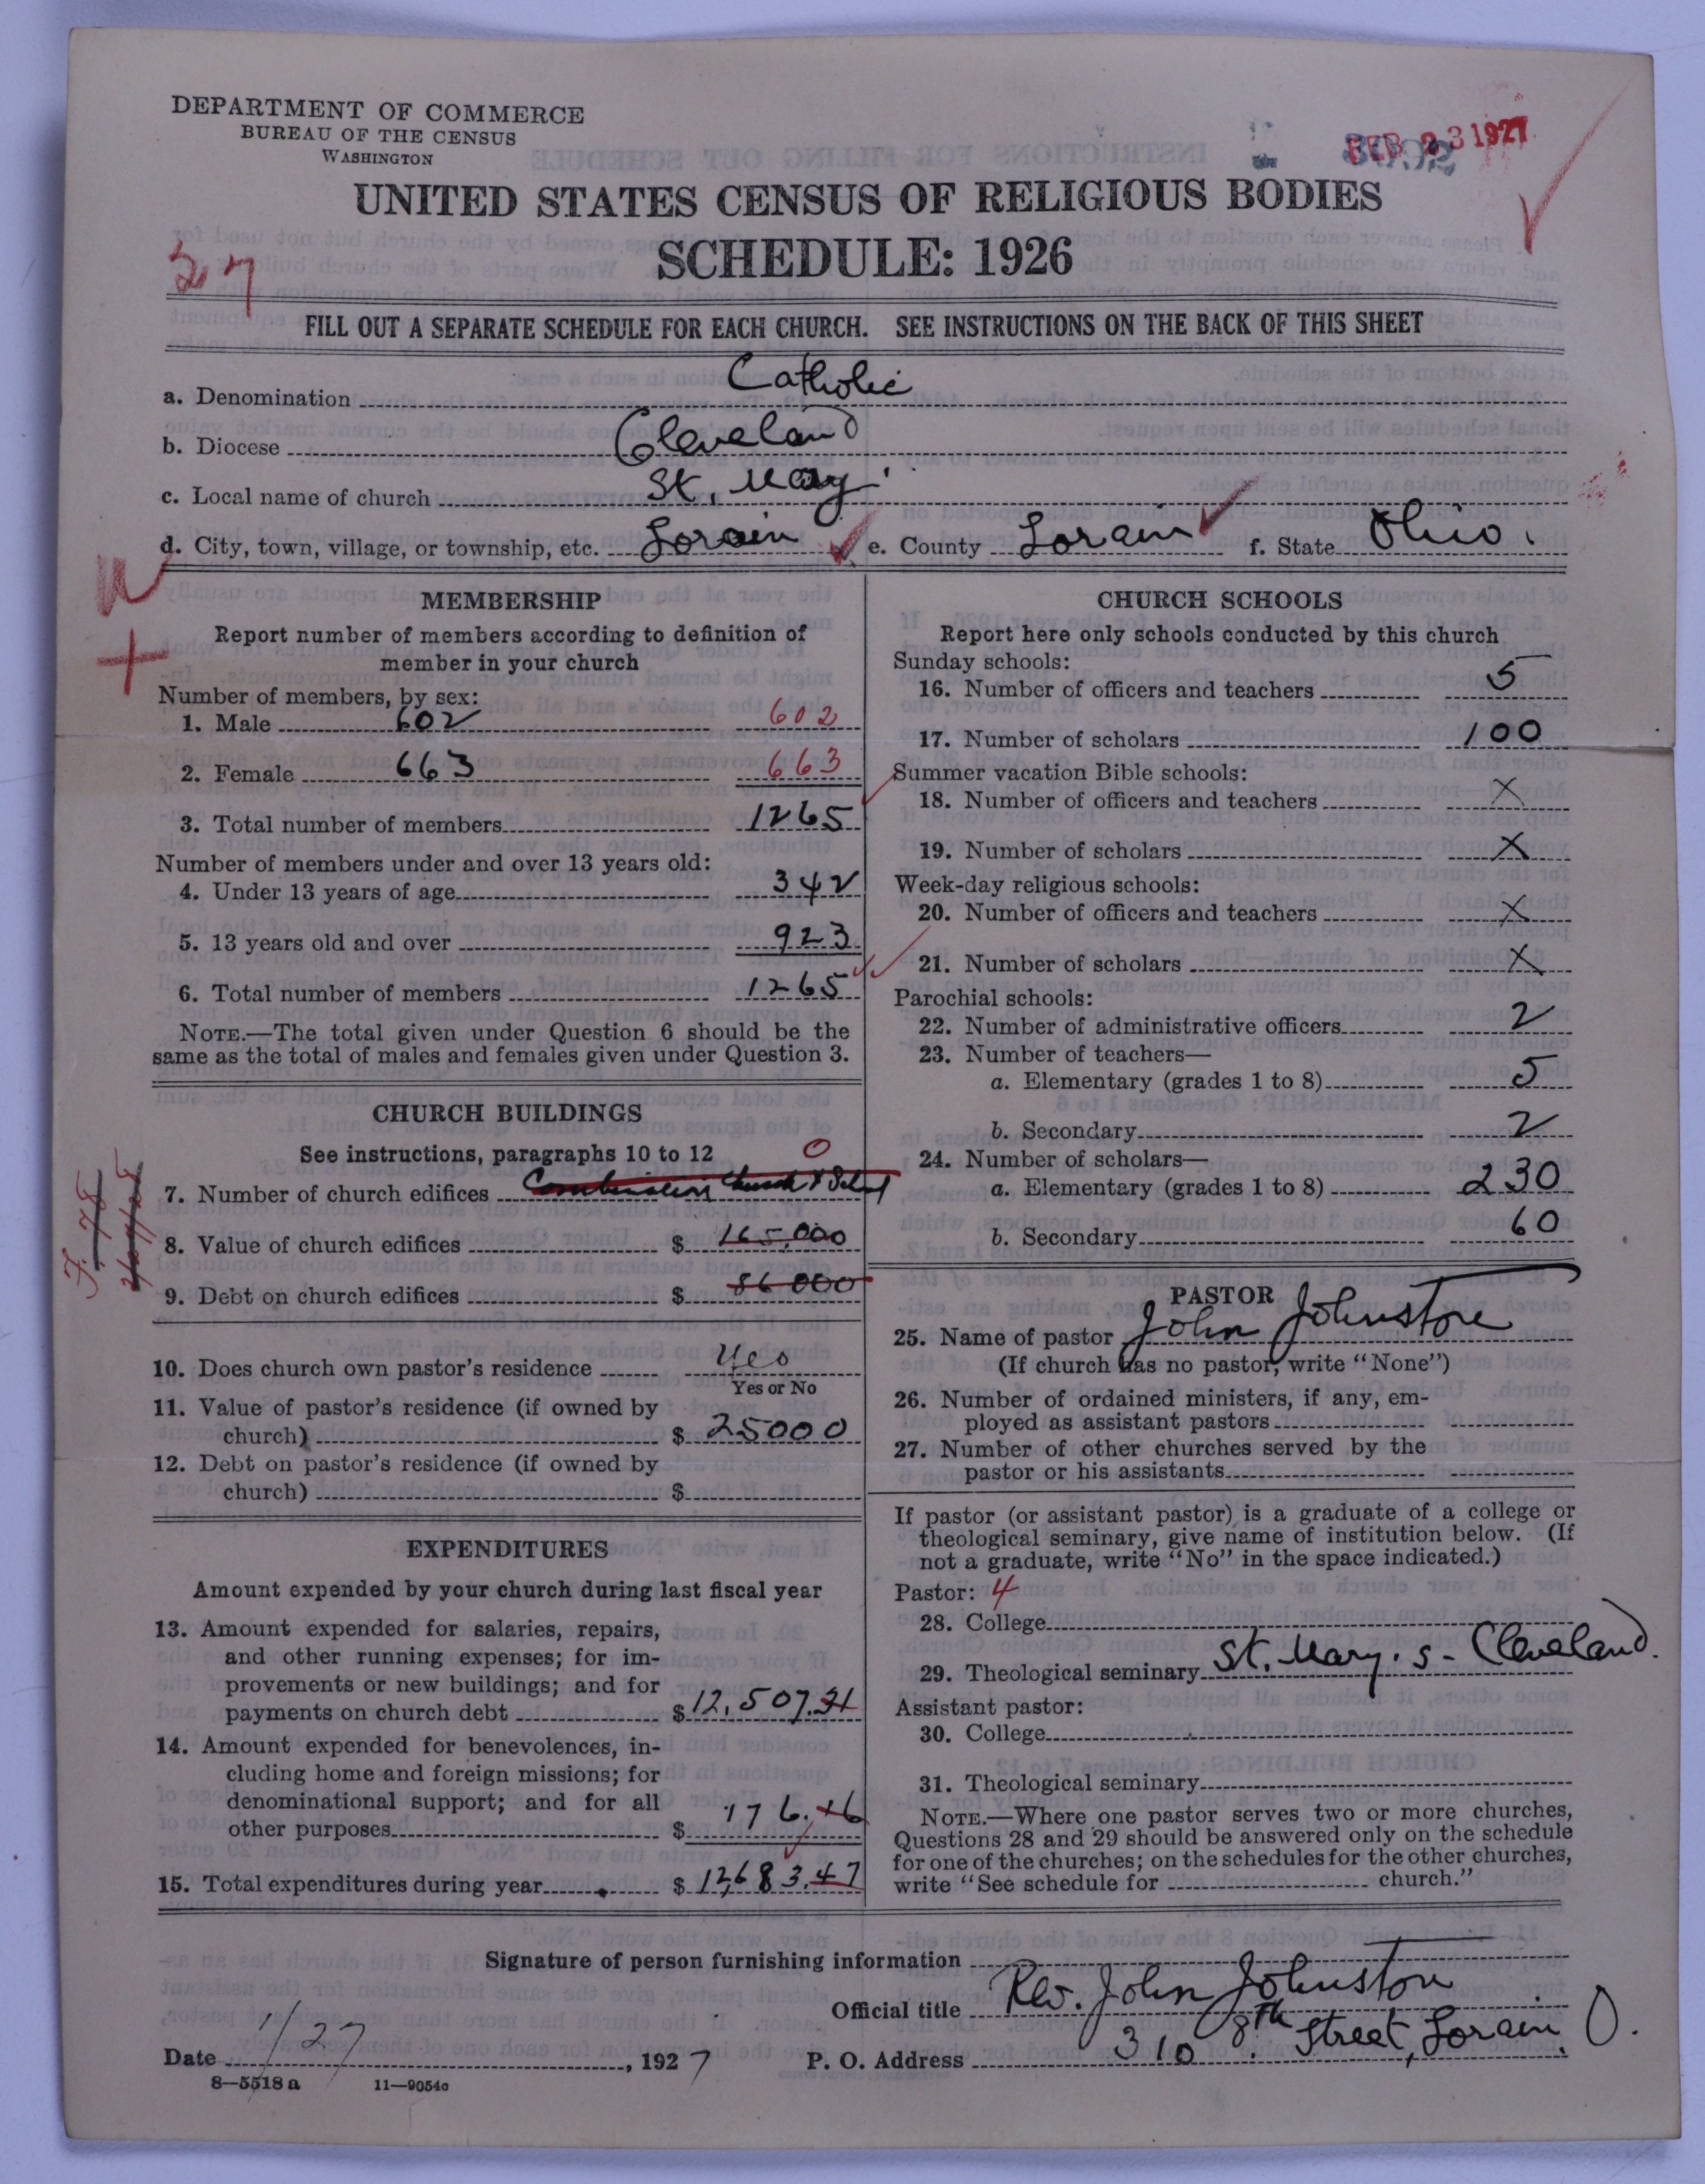 DEPARTMENT OF COMMERCE
BUREAU OF THE CENSUS
WASHINGTON
FEB 23 1927
UNITED STATES CENSUS OF RELIGIOUS BODIES
SCHEDULE: 1926
27
FILL OUT A SEPARATE SCHEDULE FOR EACH CHURCH. SEE INSTRUCTIONS ON THE BACK OF THIS SHEET
a. Denomination Catholic
b. Diocese Cleveland
c. Local name of church St. Mary
d. City, town, village, or township, etc. Lorain e. County Lorain f. State Ohio.
MEMBERSHIP
Report number of members according to definition of
member in your church
Number of members, by sex:
1. Male 602 602
2. Female 663 663
3. Total number of members 1265
Number of members under and over 13 years old:
4. Under 13 years of age 342
5. 13 years old and over 923
6. Total number of members 1265
NOTE.—The total given under Question 6 should be the
same as the total of males and females given under Question 3.
CHURCH BUILDINGS
See instructions, paragraphs 10 to 12
7. Number of church edifices Combination Church & School 0
8. Value of church edifices $ 165,000
9. Debt on church edifices $ 86000
10. Does church own pastor's residence Yes
Yes or No
11. Value of pastor's residence (if owned by
church) $ 25000
12. Debt on pastor's residence (if owned by
church) $
EXPENDITURES
Amount expended by your church during last fiscal year
13. Amount expended for salaries, repairs,
and other running expenses; for im-
provements or new buildings; and for
payments on church debt $ 12,507.31
14. Amount expended for benevolences, in-
cluding home and foreign missions; for
denominational support; and for all
other purposes $ 176.16
15. Total expenditures during year $ 12683.47
CHURCH SCHOOLS
Report here only schools conducted by this church
Sunday schools:
16. Number of officers and teachers 5
17. Number of scholars 100
Summer vacation Bible schools:
18. Number of officers and teachers X
19. Number of scholars X
Week-day religious schools:
20. Number of officers and teachers X
21. Number of scholars X
Parochial schools:
22. Number of administrative officers 2
23. Number of teachers—
a. Elementary (grades 1 to 8) 5
b. Secondary 2
24. Number of scholars—
a. Elementary (grades 1 to 8) 230
b. Secondary 60
PASTOR
25. Name of pastor John Johnston
(If church has no pastor, write "None")
26. Number of ordained ministers, if any, em-
ployed as assistant pastors
27. Number of other churches served by the
pastor or his assistants
If pastor (or assistant pastor) is a graduate of a college or
theological seminary, give name of institution below. (If
not a graduate, write "No" in the space indicated.)
Pastor: 4
28. College
29. Theological seminary St. Mary.s - Cleveland.
Assistant pastor:
30. College
31. Theological seminary
NOTE.—Where one pastor serves two or more churches,
Questions 28 and 29 should be answered only on the schedule
for one of the churches; on the schedules for the other churches,
write "See schedule for church."
Signature of person furnishing information
Official title Rev. John Johnston
Date 1/27, 1927 P. O. Address 310 8th Street, Lorain O.
8—5518 a 11—9054c